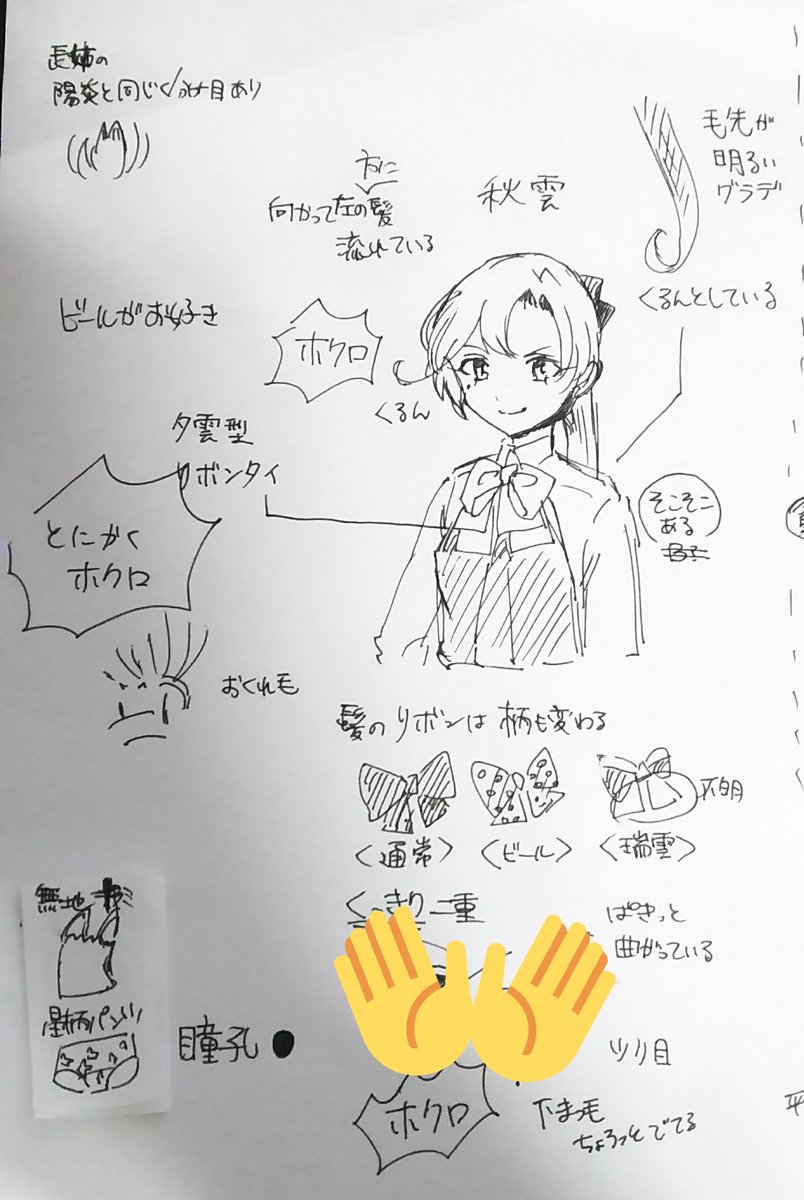 長姉の
陽炎と同じく分け目あり
毛先が
明るい
グラデ
方に
向かって左の髪
流れている
秋雲
くるんとしている
ビールがお好き
ホクロ
くるん
夕雲型
リボンタイ
そこそこ
ある
とにかく
ホクロ
おくれ毛
髪のリボンは柄も変わる
不明
<通常>
<ビール>
<瑞雲>
無地
くっきり二重
ぱきっと
曲がっている
星柄パンツ
瞳孔
ツリ目
ホクロ
下まつ毛
ちょろっとでてる
平